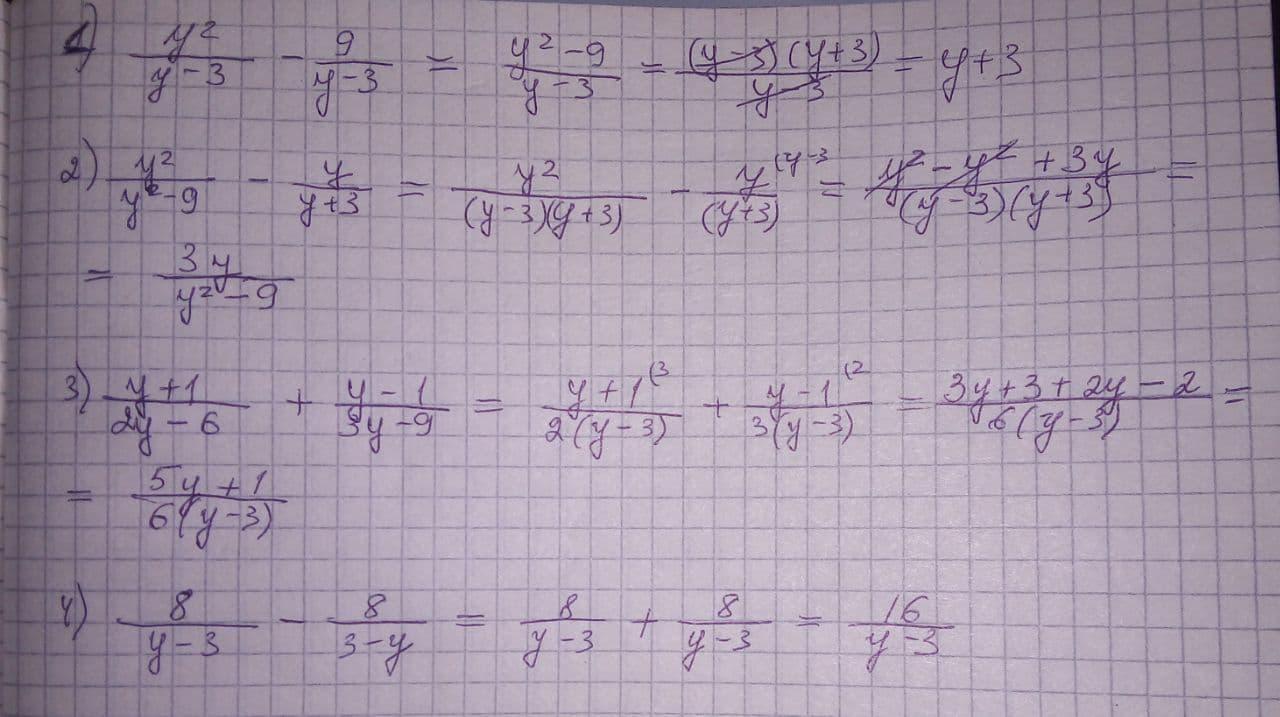 1) y²/(y-3) - 9/(y-3) = (y²-9)/(y-3) = (y-3)(y+3)/(y-3) = y+3
2) y²/(y²-9) - y/(y+3) = y²/((y-3)(y+3)) - y (y-3/(y+3) = (y²-y²+3y)/((y-3)(y+3)) =
= 3y/(y²-9)
3) (y+1)/(2y-6) + (y-1)/(3y-9) = (y+1 (3)/(2(y-3)) + (y-1 (2)/(3(y-3)) = (3y+3+2y-2)/(6(y-3)) =
= (5y+1)/(6(y-3))
4) 8/(y-3) - 8/(3-y) = 8/(y-3) + 8/(y-3) = 16/(y-3)